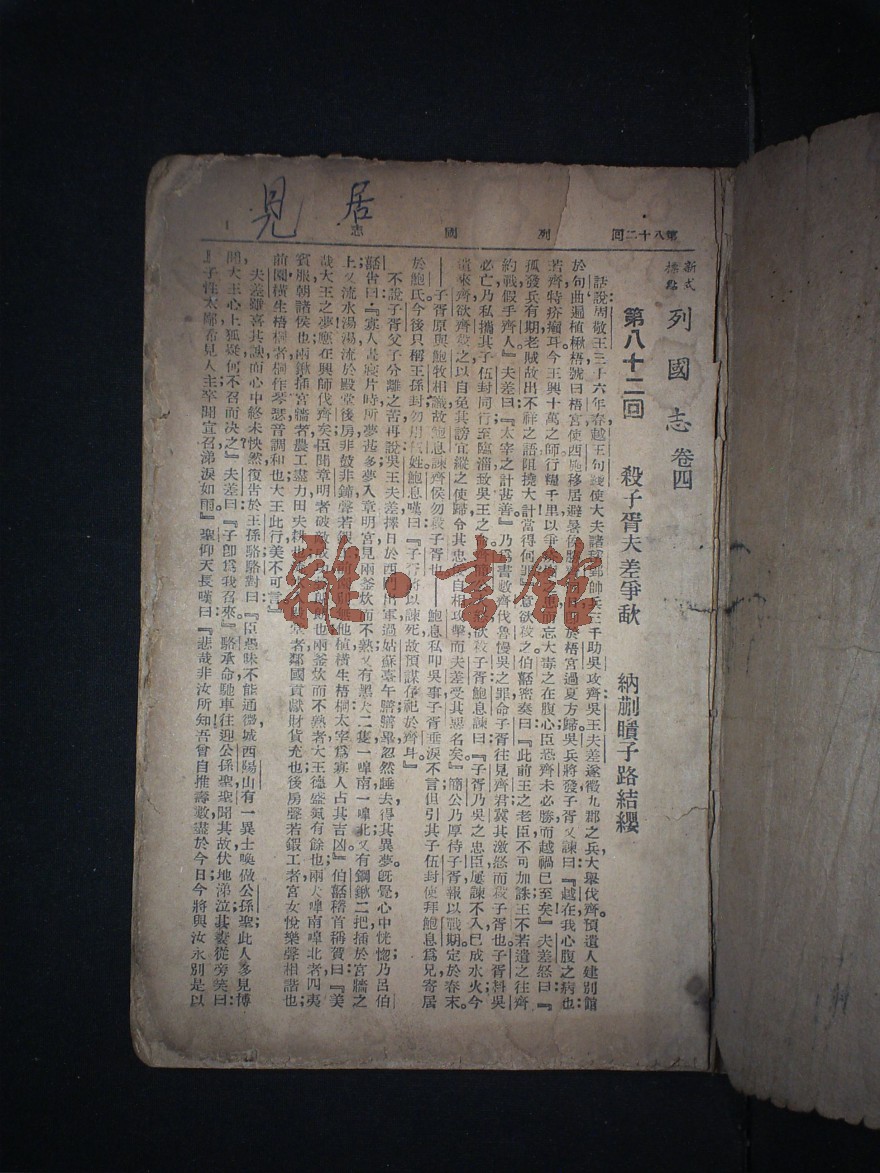 見 居
第八十二回 列國志 一
新式標點 列國志 卷四
第八十二回 殺子胥夫差爭歃 納蒯瞶子路結纓
話說周敬王三十六年春越王句踐使大夫諸稽郢帥兵三千助吳攻齊吳王夫差遂徵九郡之兵大舉伐齊預遣人建別館
於句曲遍植楸梧號曰梧宮使西施移居避暑 於梧宮過夏方歸吳兵將發子胥又諫曰『越在我心腹之病也
若齊特疥癬耳今王興十萬之師行糧千里以爭 忘大毒之在腹心臣恐齊未必勝而越禍已至矣』夫差怒曰『
孤發兵有期老賊故出不祥之語阻撓大計當得何罪』意欲殺之伯嚭密奏曰『此前王之老臣不可加誅王不若遣之往齊
約戰假手齊人』夫差曰『太宰之計甚善』乃爲書數齊伐魯慢吳之罪命子胥往見齊君冀其激怒而殺子胥也子胥料吳
必亡乃私攜其子伍封同行至臨淄致吳王之命 欲殺子胥鮑息諫曰『子胥乃吳之忠臣屢諫不入已成水火今
遣來齊欲齊殺之以自免其謗宜縱之使歸令其忠 自相攻擊而夫差受其惡名矣』簡公乃厚待子胥報以戰期定於春末
子胥原與鮑牧相識故鮑息諫齊侯勿殺子胥也 鮑息私叩吳事子胥垂淚不言但引其子伍封使拜鮑息爲兄寄居
於鮑氏今後只稱王孫封勿用伍姓鮑息嘆曰『子胥將以諫死故預謀存祀於齊耳』
不說子胥父子分離之苦再說吳王夫差擇日於西門出軍過姑蘇臺午膳膳畢忽然睡去得其異夢旣覺心中恍惚乃召伯
嚭告曰『寡人晝寢片時所夢甚多夢入章明宮見兩釜炊而不熟又有黑犬二隻一嘷南一嘷北又有鋼鍬二把插於宮牆之
上又流水湯湯流於殿堂後房非鼓非鐘聲若鍛 無他植橫生梧桐太宰爲寡人占其吉凶』伯嚭稽首稱賀曰『美
哉大王之夢應在興師伐齊矣臣聞章明者破敵 也兩釜炊而不熟者大王德盛氣有餘也兩犬嘷南嘷北者四夷
賓服朝諸侯也兩鍬插宮牆者農工盡力田夫耕也 堂者鄰國貢獻財貨充也後房聲若鍛工者宮女悅樂聲相諧也
前園橫生梧桐者桐作琴瑟音調和也大王此行美不可言』
夫差雖喜其諛而心中終未怏然復告於王孫駱駱對曰『臣愚昧不能通微城西陽山有一異士喚做公孫聖此人多見博
聞大王心上狐疑何不召而决之』夫差曰『子卽爲我召來』駱承命馳車往迎公孫聖聖聞其故伏地涕泣其妻從旁笑曰
『子性太鄙希見人主卒聞宣召涕淚如雨』聖仰天長嘆曰『悲哉非汝所知吾曾自推壽數盡於今日今將與汝永別是以
雜·書館